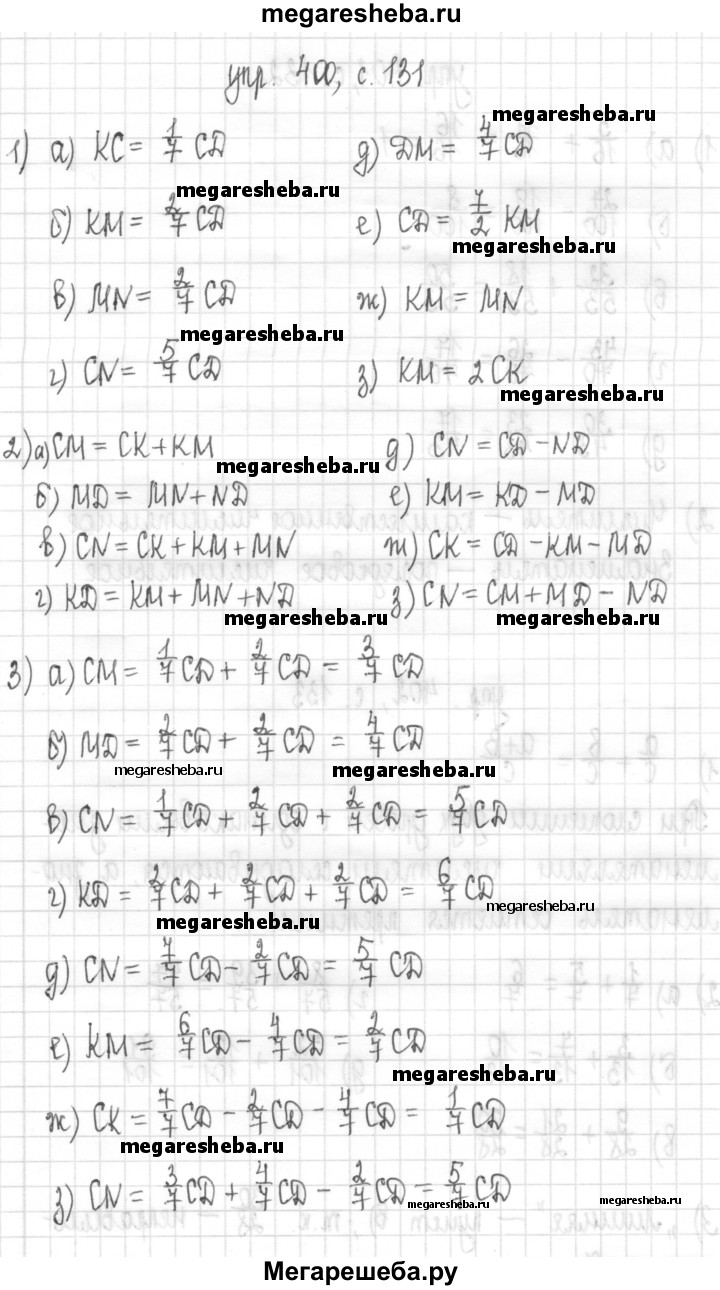 megaresheba.ru
упр. 400, с. 131
megaresheba.ru
1) а) KC = 1/7 CD д) DM = 4/7 CD
megaresheba.ru
б) KM = 2/7 CD е) CD = 7/2 KM
megaresheba.ru
в) MN = 2/7 CD ж) KM = MN
megaresheba.ru
г) CN = 5/7 CD з) KM = 2 CK
megaresheba.ru
2) а) CM = CK + KM д) CN = CD - ND
megaresheba.ru
б) MD = MN + ND е) KM = KD - MD
в) CN = CK + KM + MN ж) CK = CD - KM - MD
г) KD = KM + MN + ND з) CN = CM + MD - ND
megaresheba.ru megaresheba.ru
3) а) CM = 1/7 CD + 2/7 CD = 3/7 CD
б) MD = 2/7 CD + 2/7 CD = 4/7 CD
megaresheba.ru megaresheba.ru
в) CN = 1/7 CD + 2/7 CD + 2/7 CD = 5/7 CD
г) KD = 2/7 CD + 2/7 CD + 2/7 CD = 6/7 CD
megaresheba.ru megaresheba.ru
д) CN = 7/7 CD - 2/7 CD = 5/7 CD
е) KM = 6/7 CD - 4/7 CD = 2/7 CD
megaresheba.ru
ж) CK = 7/7 CD - 2/7 CD - 4/7 CD = 1/7 CD
megaresheba.ru
з) CN = 3/7 CD + 4/7 CD - 2/7 CD = 5/7 CD
megaresheba.ru megaresheba.ru
Мегарешеба.ру